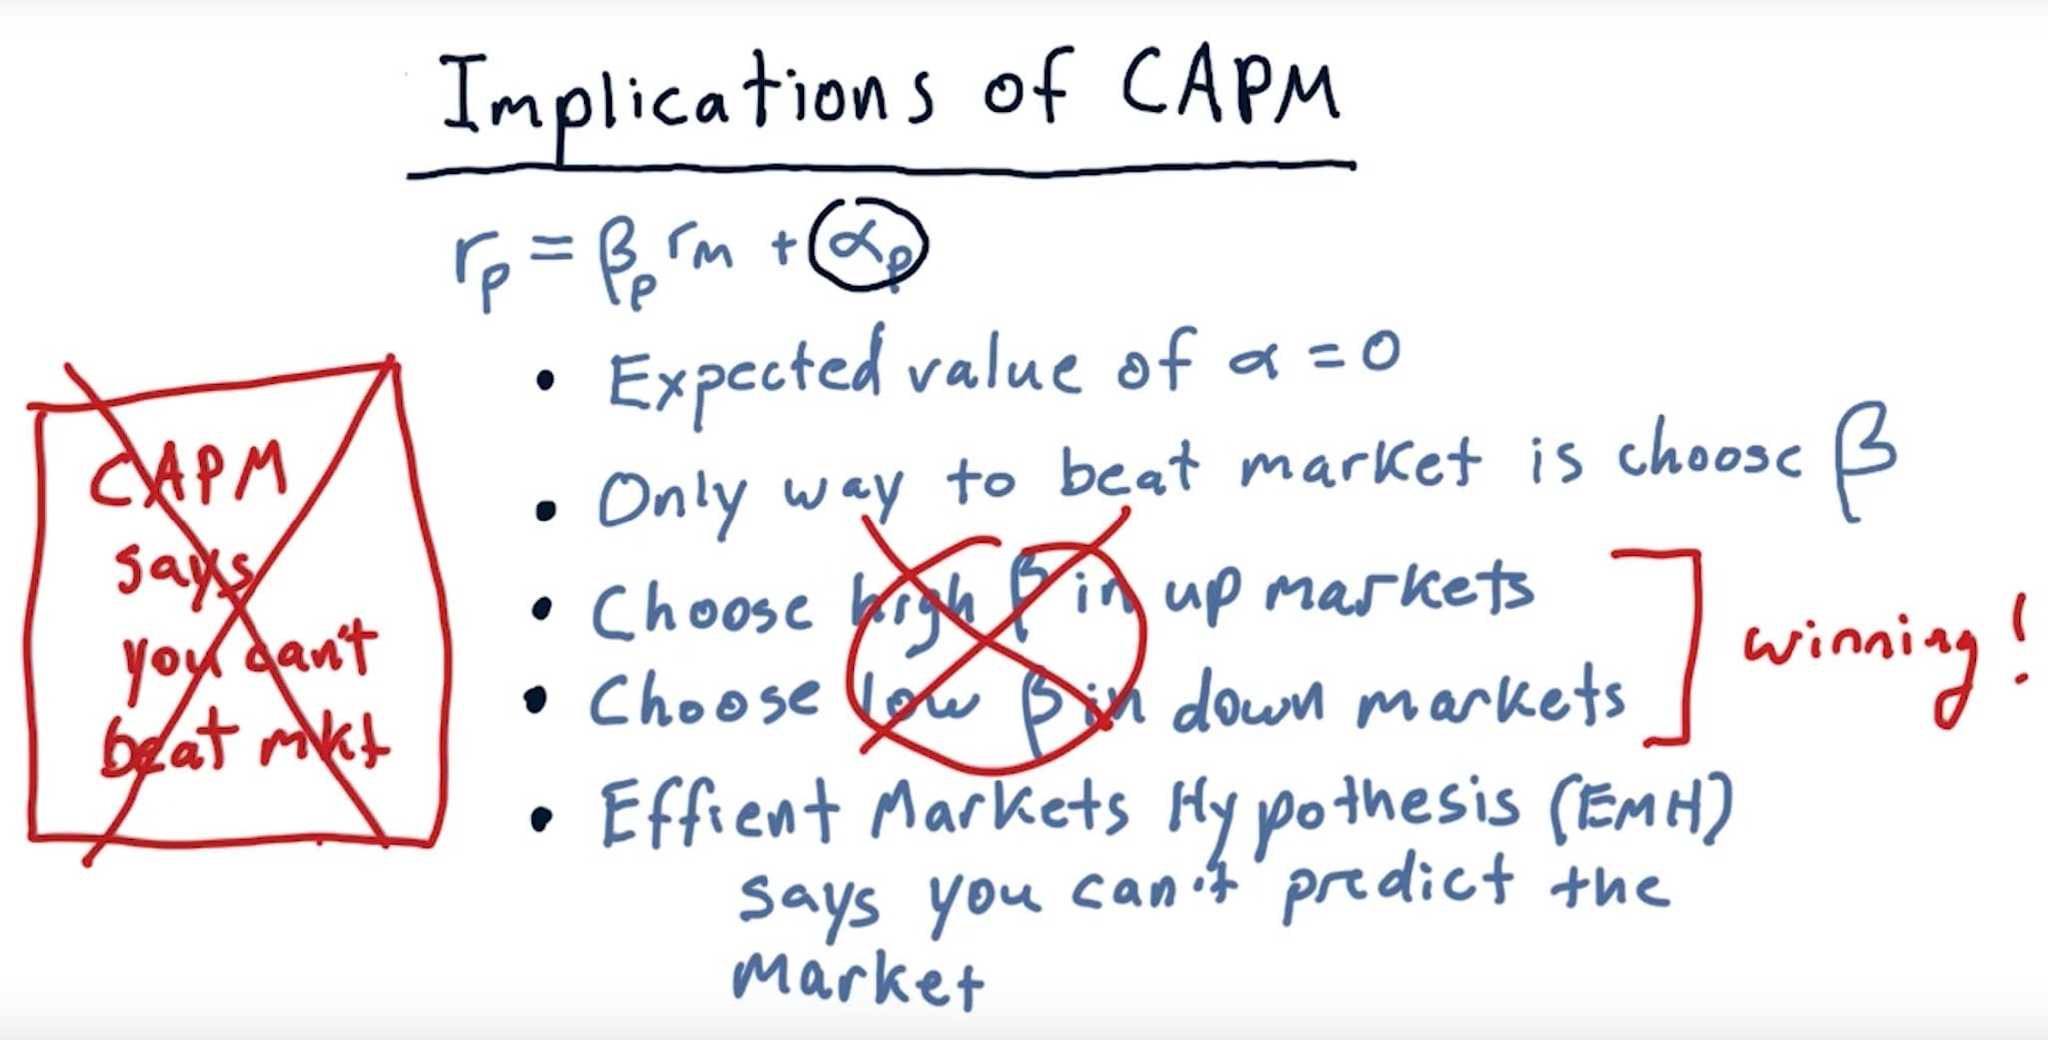 Implications of CAPM
rₚ = βₚ rₘ + αₚ
• Expected value of α = 0
• Only way to beat market is choose β
• Choose high β in up markets
• Choose low β in down markets
winning!
• Effient Markets Hypothesis (EMH)
says you can't predict the
Market
CAPM
says
you can't
beat mkt